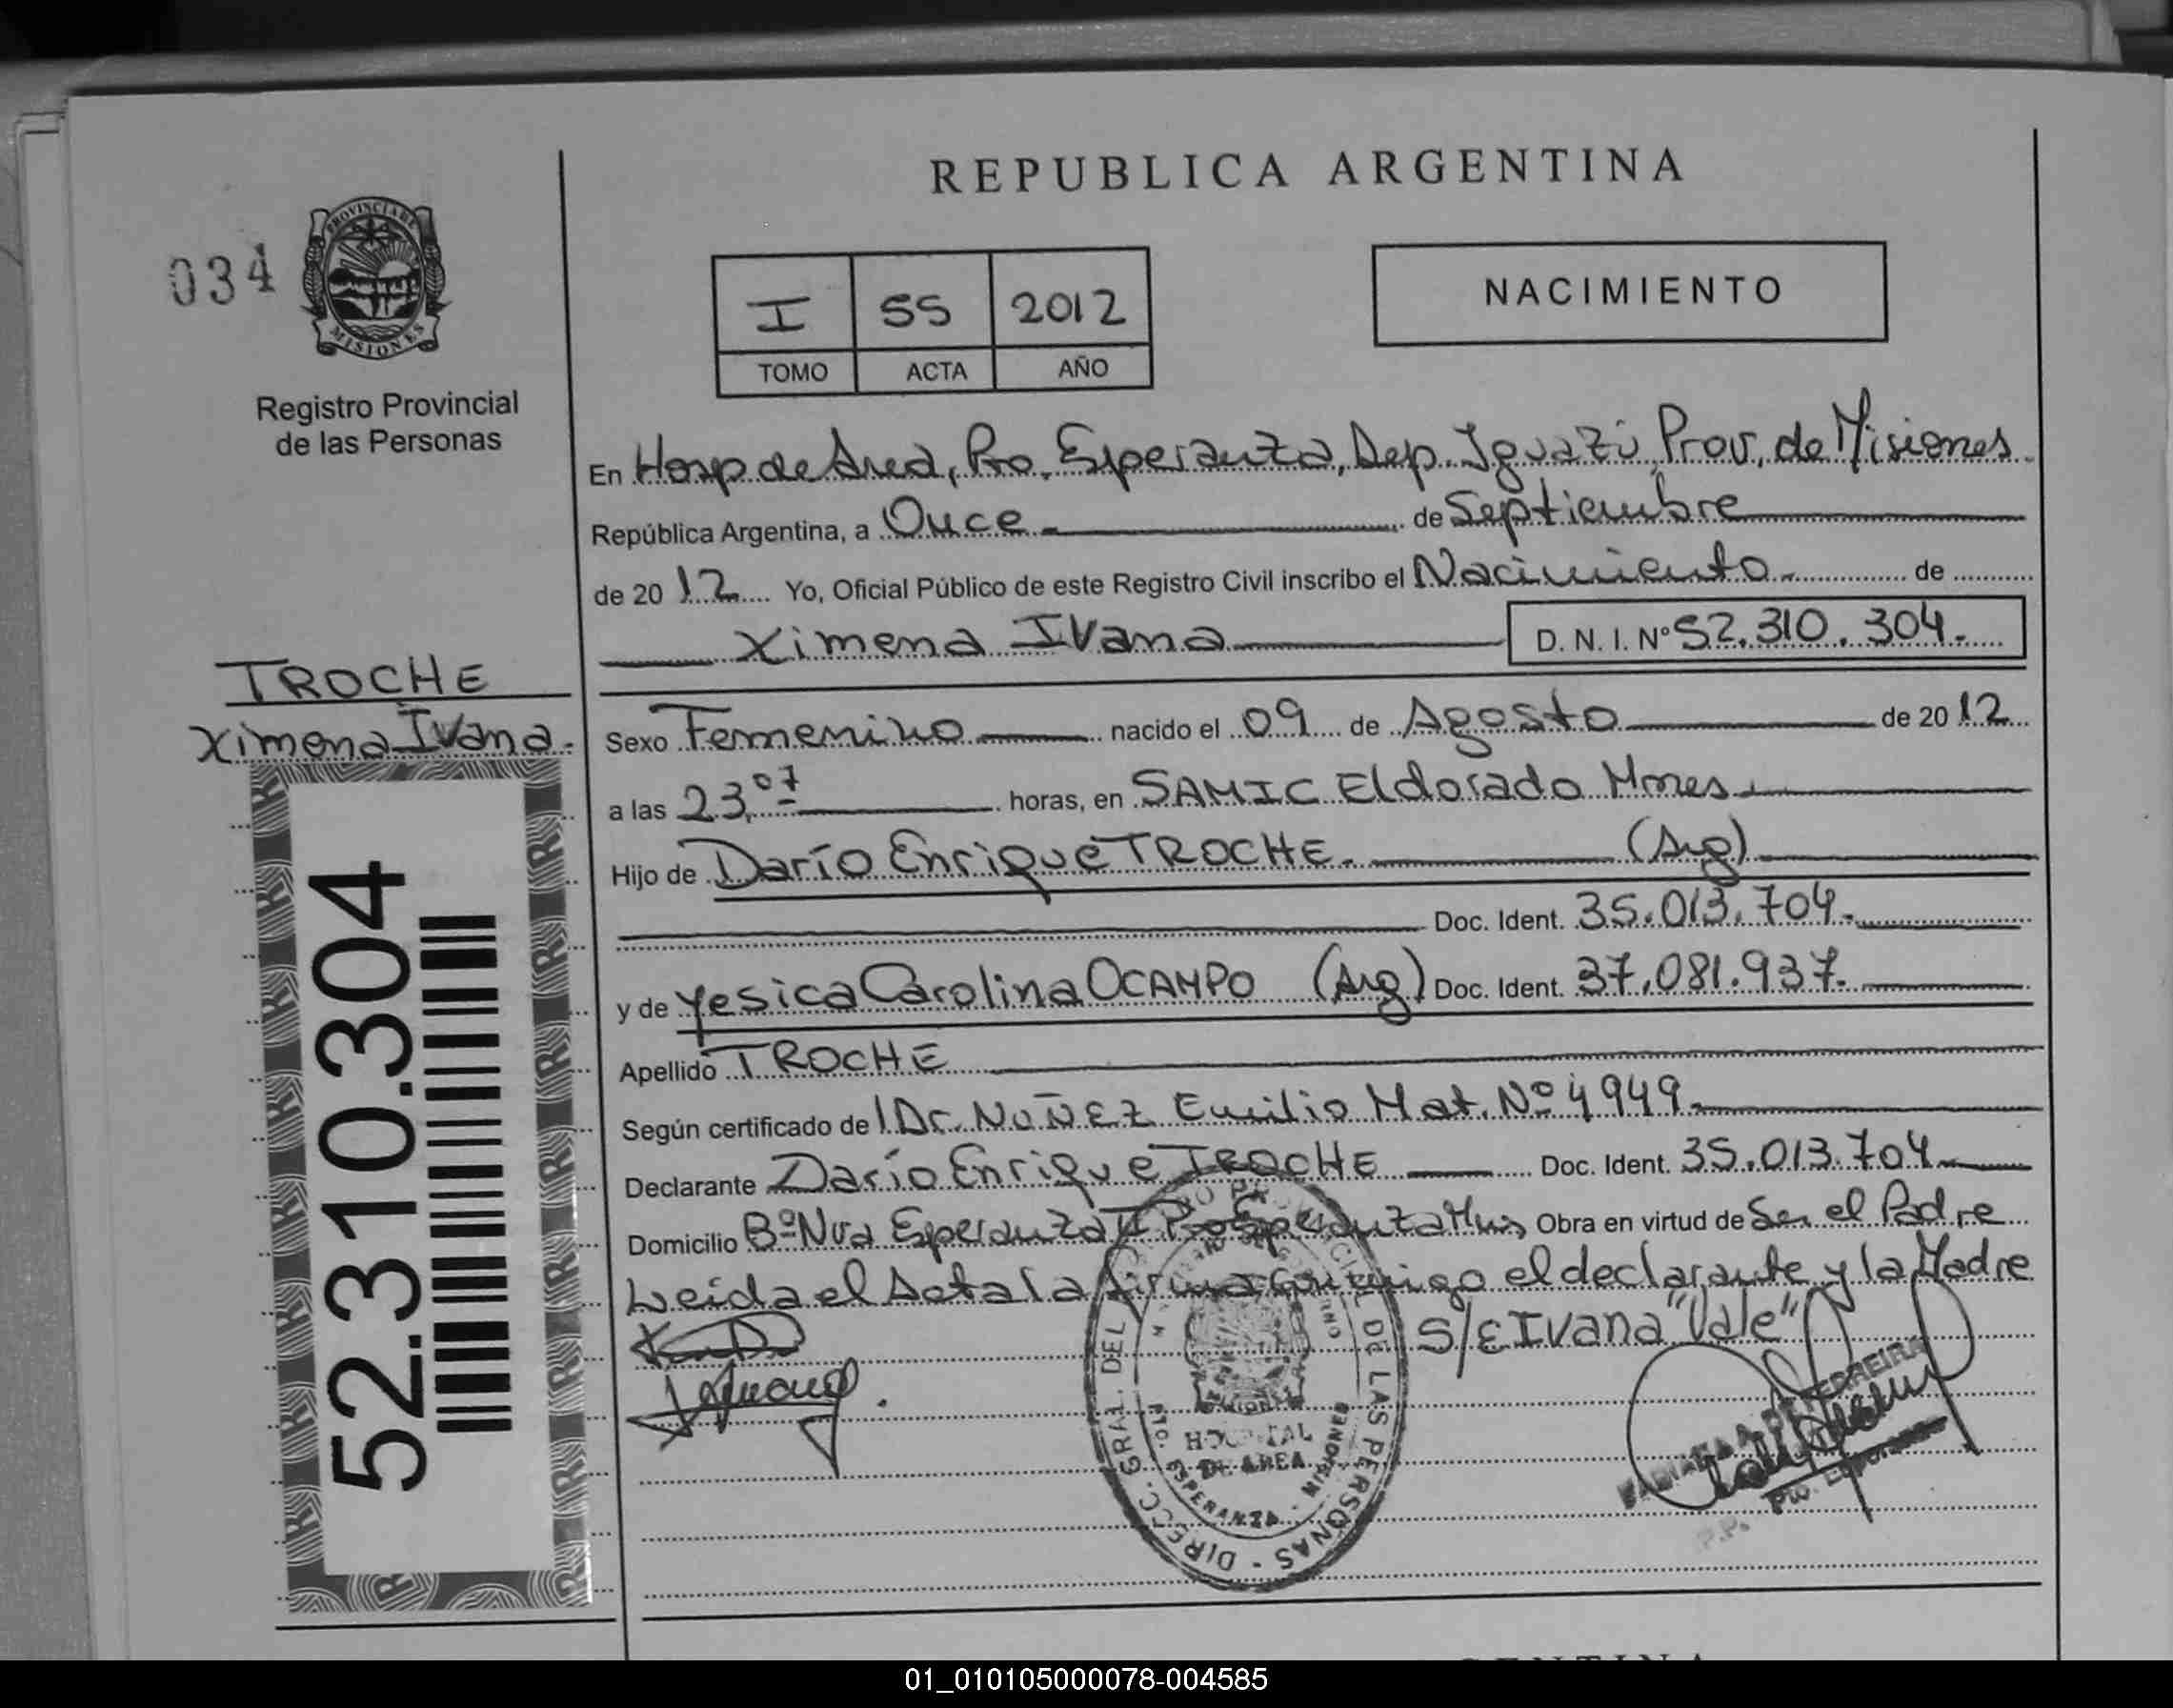 REPUBLICA ARGENTINA
034
PROVINCIA DE
MISIONES
Registro Provincial
de las Personas
I 55 2012
TOMO ACTA AÑO
NACIMIENTO
En Hosp de Area, Pto. Esperanza, Dep. Iguazú, Prov. de Misiones
República Argentina, a Once de Septiembre
de 2012 Yo, Oficial Público de este Registro Civil inscribo el Nacimiento de
Ximena Ivana D. N. I. Nº 52.310.304.
TROCHE
Ximena Ivana.
Sexo Femenino nacido el 09 de Agosto de 2012
a las 23,07 horas, en SAMIC Eldorado Mnes
Hijo de Darío Enrique TROCHE. (Arg)
Doc. Ident. 35.013.704.
y de Yesica Carolina OCAMPO (Arg) Doc. Ident. 37.081.937.
Apellido TROCHE
Según certificado del Dr. NUÑEZ Emilio Mat. Nº 4949.
Declarante Darío Enrique TROCHE Doc. Ident. 35.013.704
Domicilio Bº Nva Esperanza II Pto Esperanza Mnes Obra en virtud de Ser el Padre
Leida el Acta la firma conmigo el declarante y la Madre
S/E Ivana "Vale"
52.310.304
DIRECC. GRAL. DEL DE LAS PERSONAS
HOSPITAL
DE AREA
PTO. ESPERANZA - MISIONES
FERREIRA
01_010105000078-004585